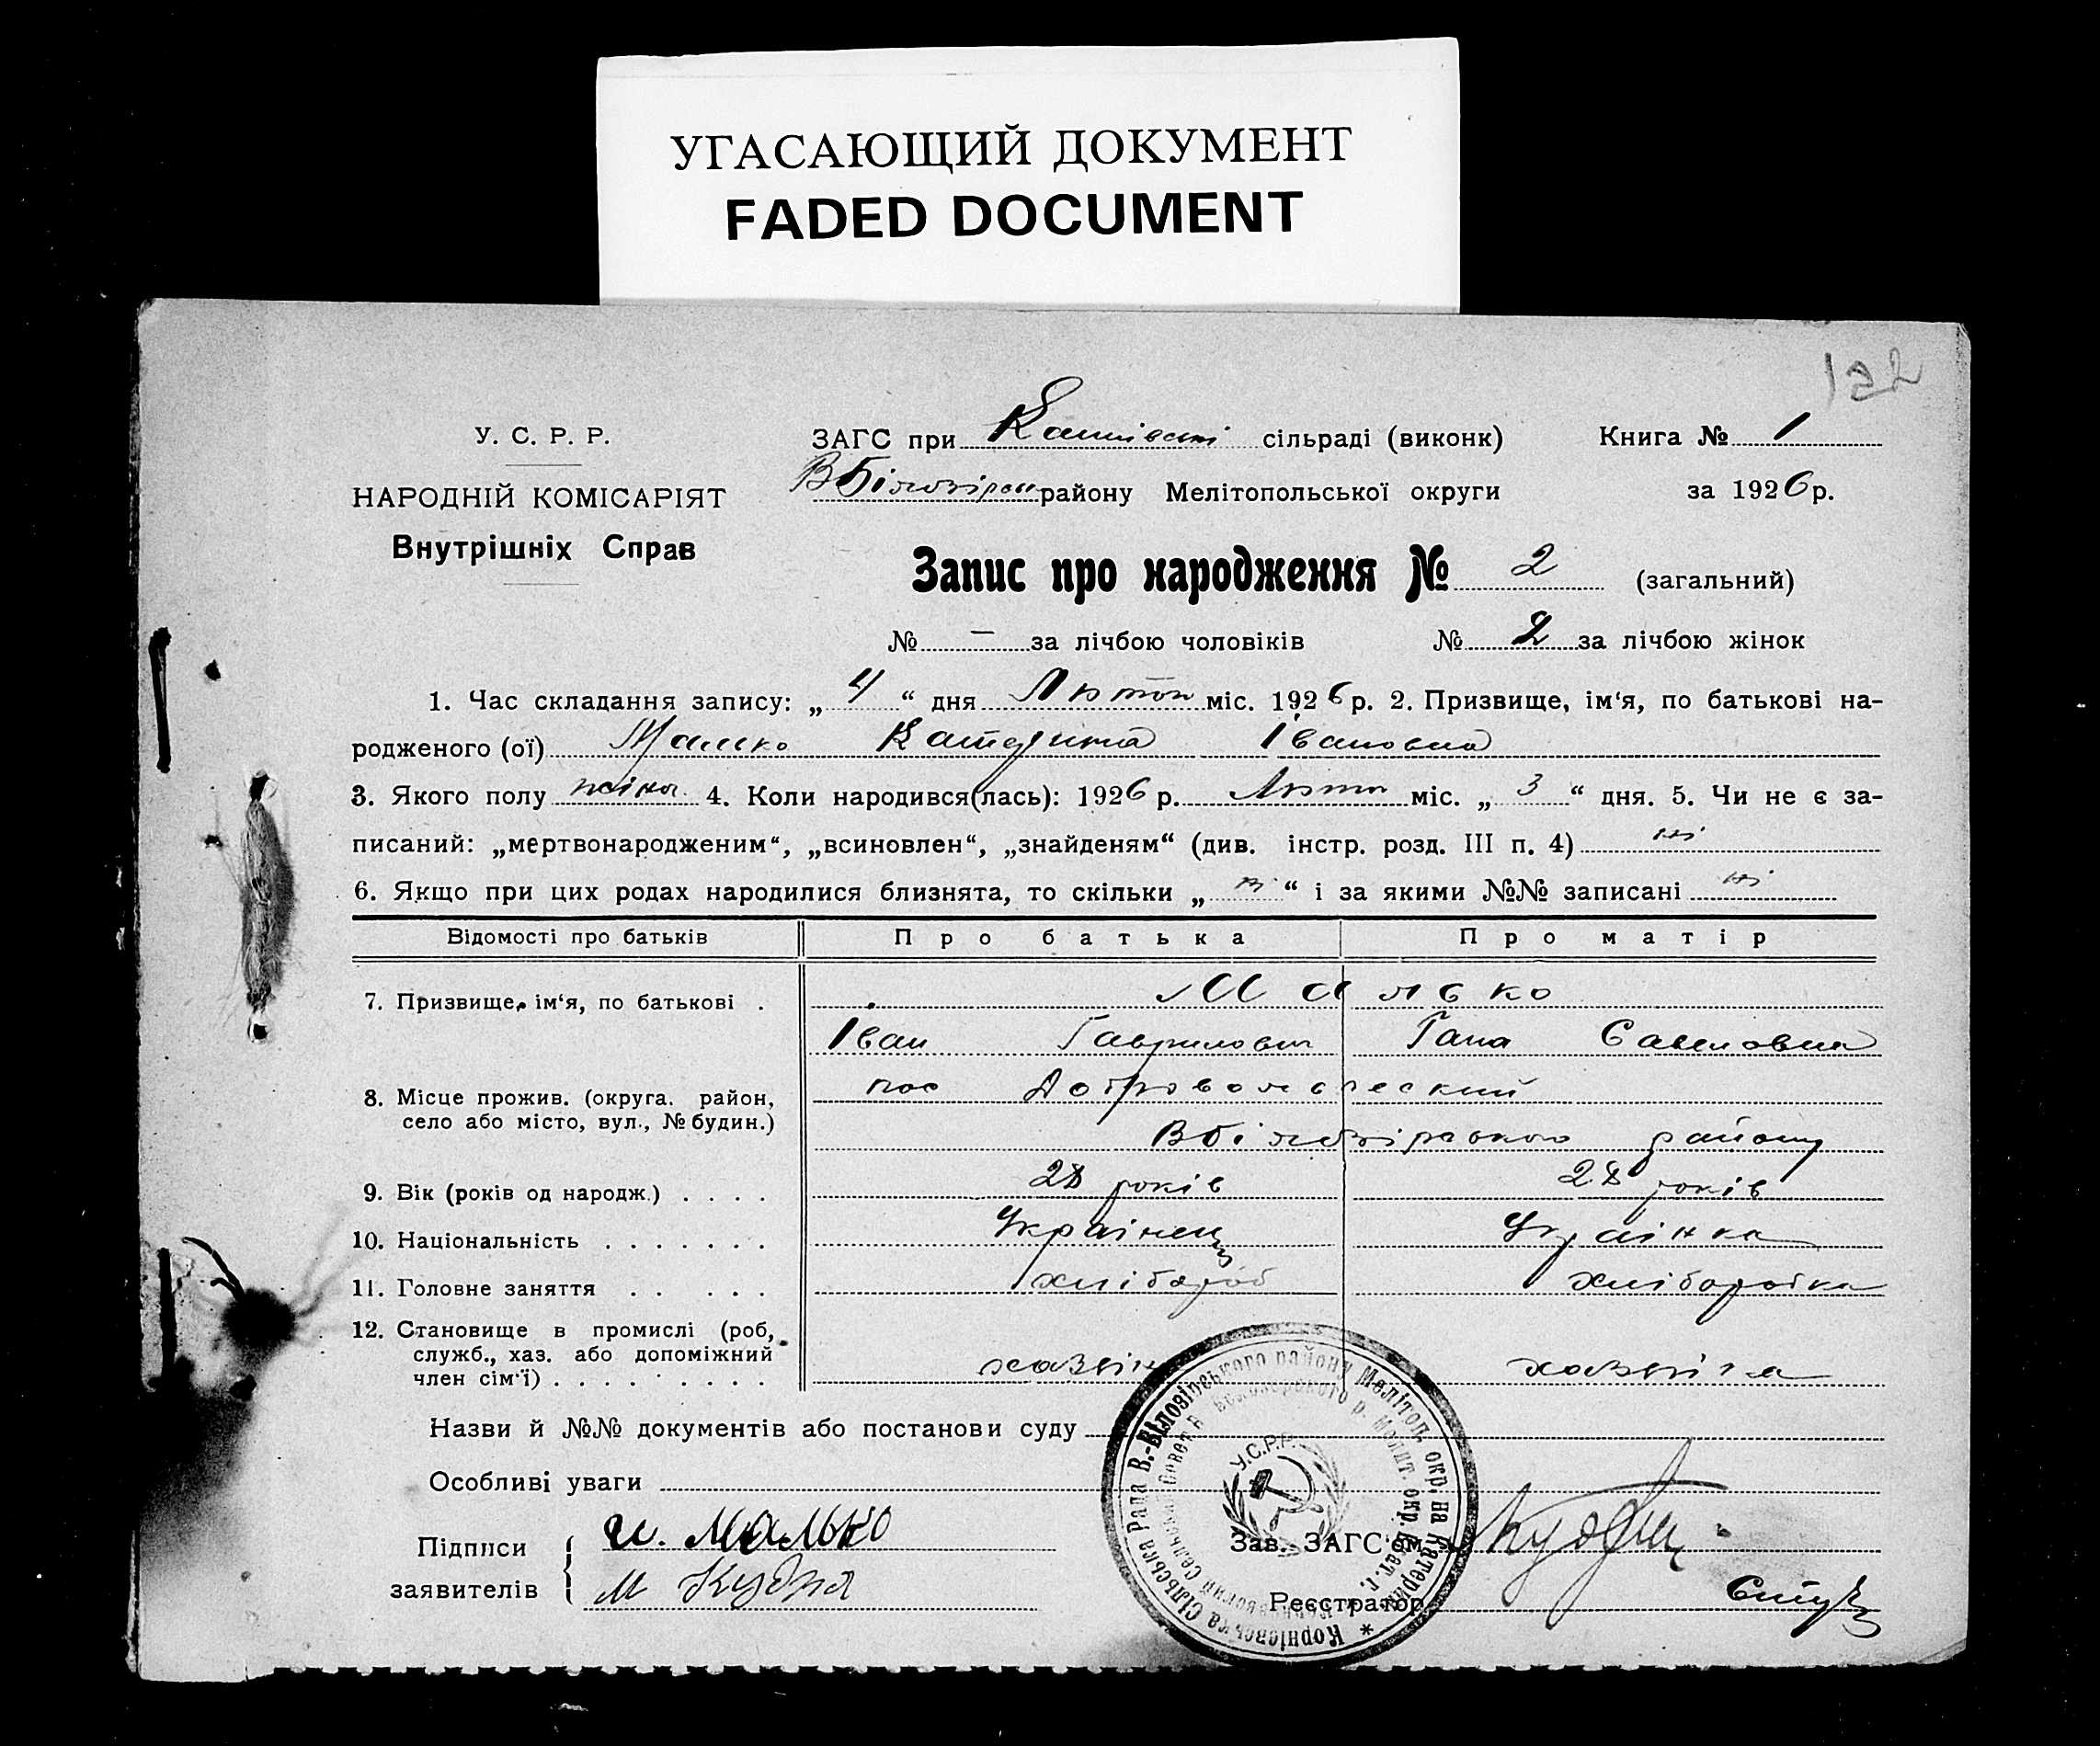 УГАСАЮЩИЙ ДОКУМЕНТ
FADED DOCUMENT
132
У. С. Р. Р.
НАРОДНІЙ КОМІСАРІЯТ
Внутрішніх Справ
ЗАГС при сільраді (виконк) Книга № 1
району Мелітопольської округи за 1926 р.
Запис про народження № 2 (загальний)
№ — за лічбою чоловіків № 2 за лічбою жінок
1. Час складання запису: „ 4 “ дня міс. 1926 р. 2. Призвище, ім‘я, по батькові на-
родженого (ої) Малько Катерина Івановна
3. Якого полу жіноч. 4. Коли народився(лась): 1926 р. Люто міс. „ 3 “ дня. 5. Чи не є за-
писаний: „мертвонародженим“, „всиновлен“, „знайденям“ (див. інстр. розд. III п. 4) ні
6. Якщо при цих родах народилися близнята, то скільки „ ні “ і за якими №№ записані ні
Відомості про батьків Про батька Про матір
7. Призвище, ім‘я, по батькові . Малько
Іван Гаврилович Гана Савеловна
8. Місце прожив. (округа. район, пос
село або місто, вул., № будин.) ВБілозірського району
9. Вік (років од народж.) . . . . 28 років 28 років
10. Національність . . . . . . . Українец Українка
11. Головне заняття . . . . . хлібороб хліборобка
12. Становище в промислі (роб,
служб., хаз. або допоміжний
член сім‘ї) . . . . . . . . . хазяїн хазяїка
Назви й №№ документів або постанови суду
Особливі уваги
Підписи заявителів { и. Малько
М Кудря
Зав. ЗАГС‘ом
Реєстратор
Корнієвська Сільська Рада В.-Білозірського району Мелітоп. окр. на Катерин.
У.С.Р.Р.